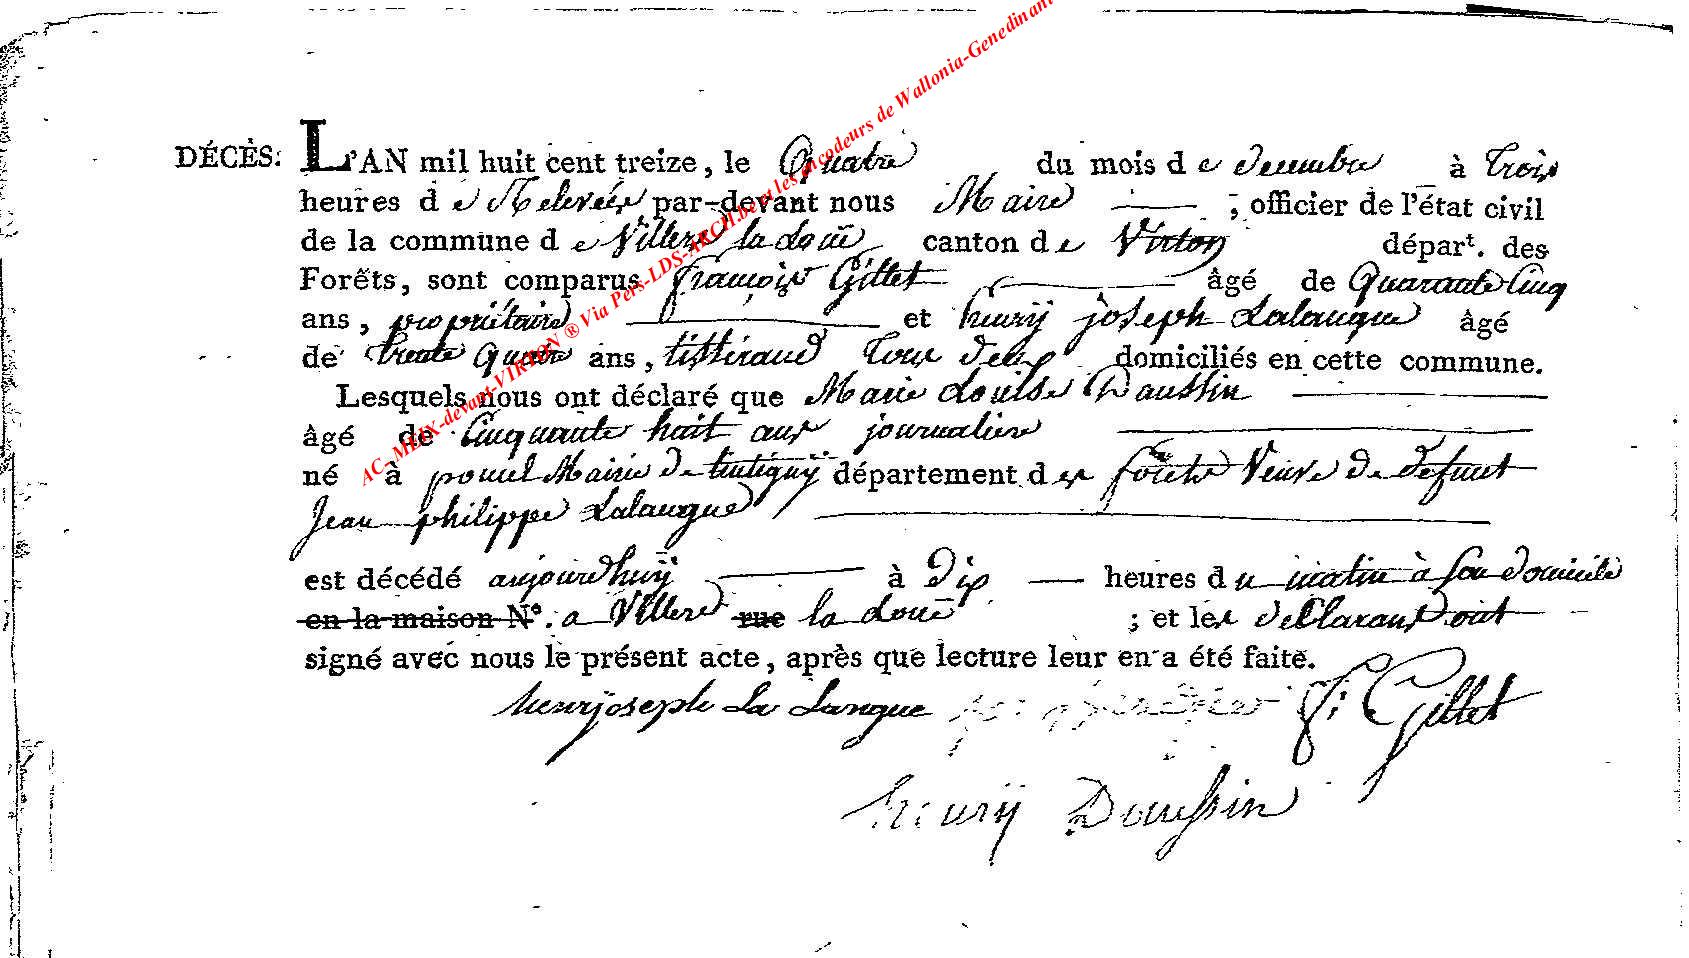 AC-MEIX-devant-VIRTON ® Via Pers-LDS-ARCH.be et les encodeurs de Wallonia-Genedinant
DÉCÈS. L'AN mil huit cent treize, le Quatre du mois de decembre à trois
heures de Relevée par-devant nous Maire ; officier de l'état civil
de la commune de Villers la Loüe canton de Virton dépar.t des
Forêts, sont comparus françois Gillet âgé de Quarante Cinq
ans, propriétaire et henrÿ joseph Lalangue âgé
de trente Quatre ans, tisserand tous deux domiciliés en cette commune.
Lesquels nous ont déclaré que Marie Louisse Daussin
âgé de Cinquante huit ans journaliere
né à Mairie de tintignÿ département des forêts Veuve de defunt
Jean philippe Lalangue
est décédé aujourdhuÿ à Dix heures du matin à son domicile
en la maison N.° a Villers rue la Loüe ; et les declarans ont
signé avec nous le présent acte, après que lecture leur en a été faite.
henrÿ joseph La Langue F: Gillet
henrÿ Daussin